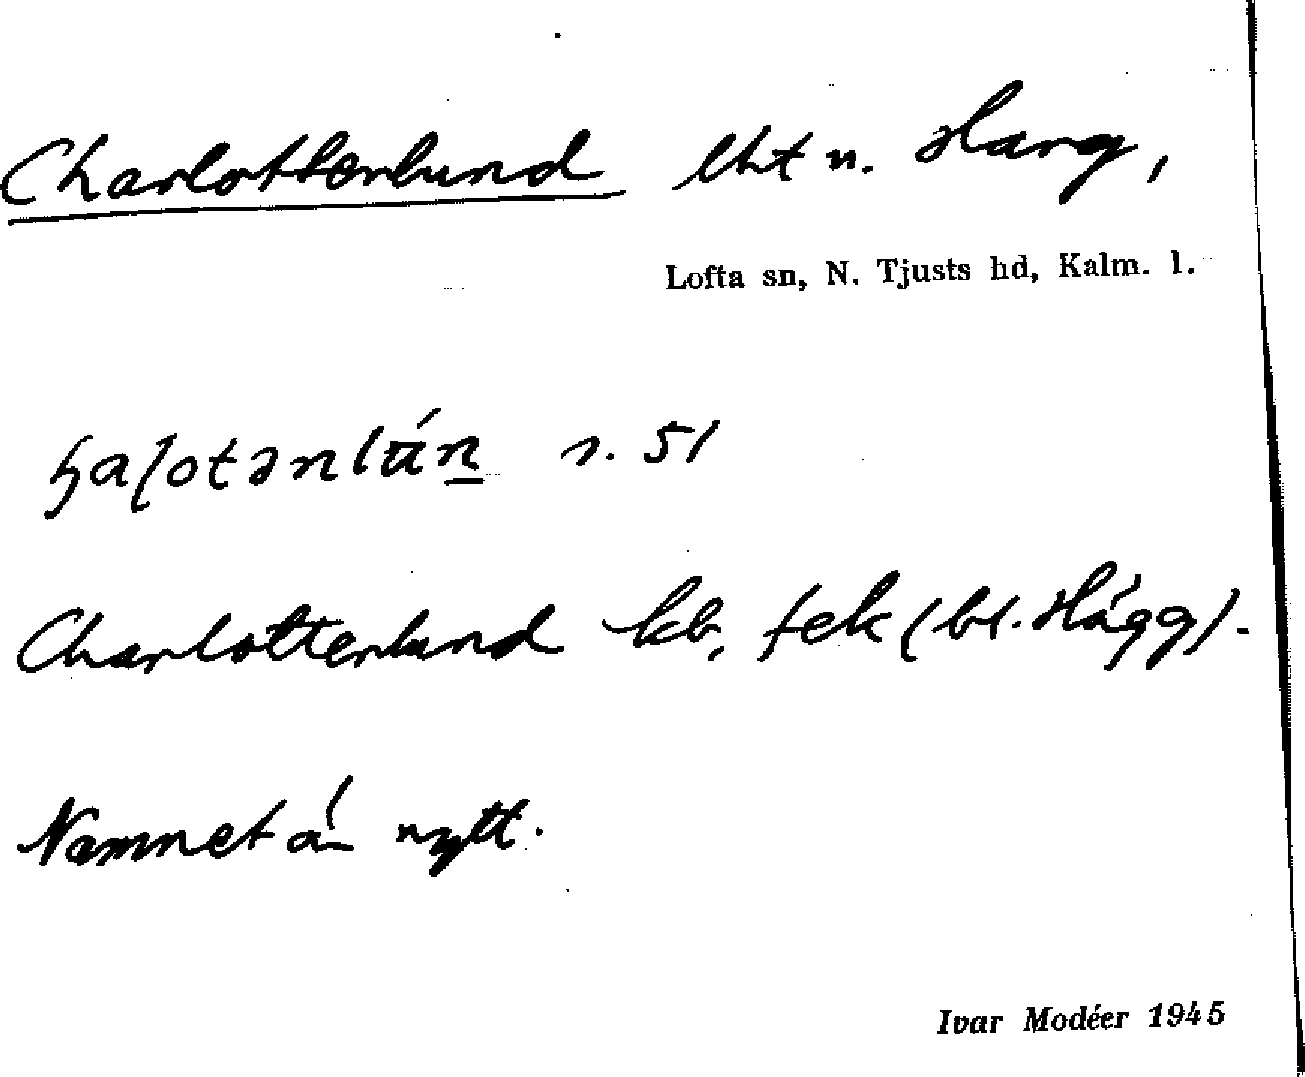 Charlottenlund lht u. Hang,
Lofta sn, N. Tjusts hd, Kalm. l.
s. 51
Charlottenlund kb, fek (bl. Hägg).
Namnet är nytt.
Ivar Modéer 1945